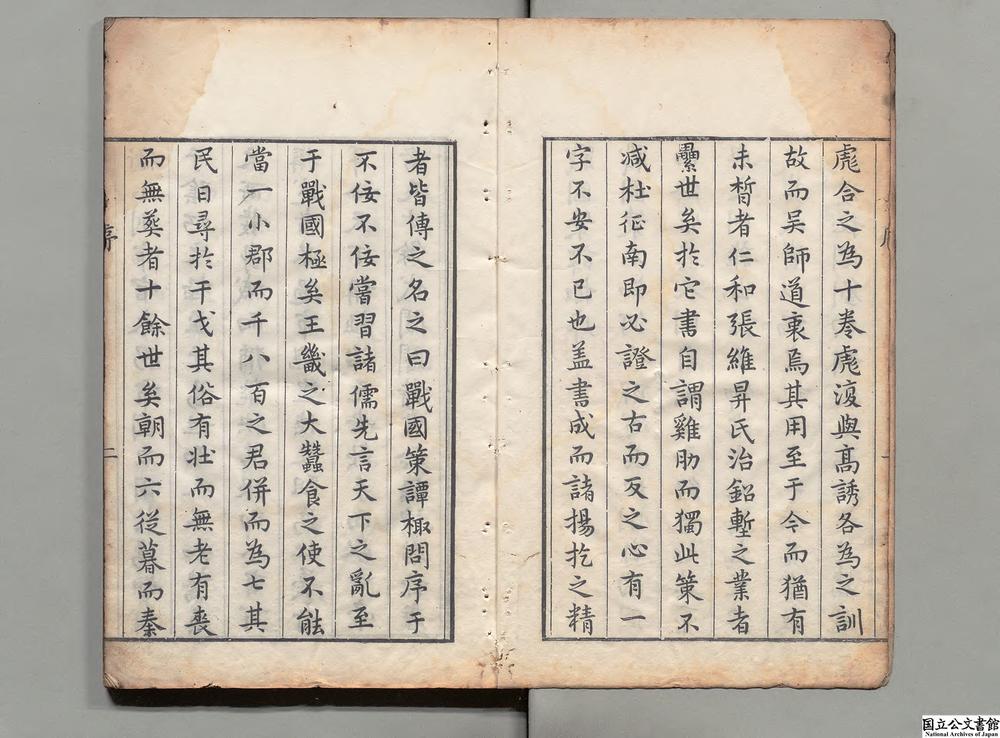 彪合之為十卷彪復與高誘各為之訓
故而吳師道裒焉其用至于今而猶有
未晳者仁和張維昇氏治鉛塹之業者
纍世矣於它書自謂雞肋而獨此策不
减杜征南即必證之古而反之心有一
字不安不已也盖書成而諸揚扢之精
者皆傅之名之曰戰國策譚棷問序于
不佞不佞嘗習諸儒先言天下之亂至
于戰國極矣王畿之大蠶食之使不能
當一小郡而千八百之君併而為七其
民日尋於干戈其俗有壯而無老有喪
而無葬者十餘世矣朝而六從暮而秦
序
二
国立公文書館
National Archives of Japan